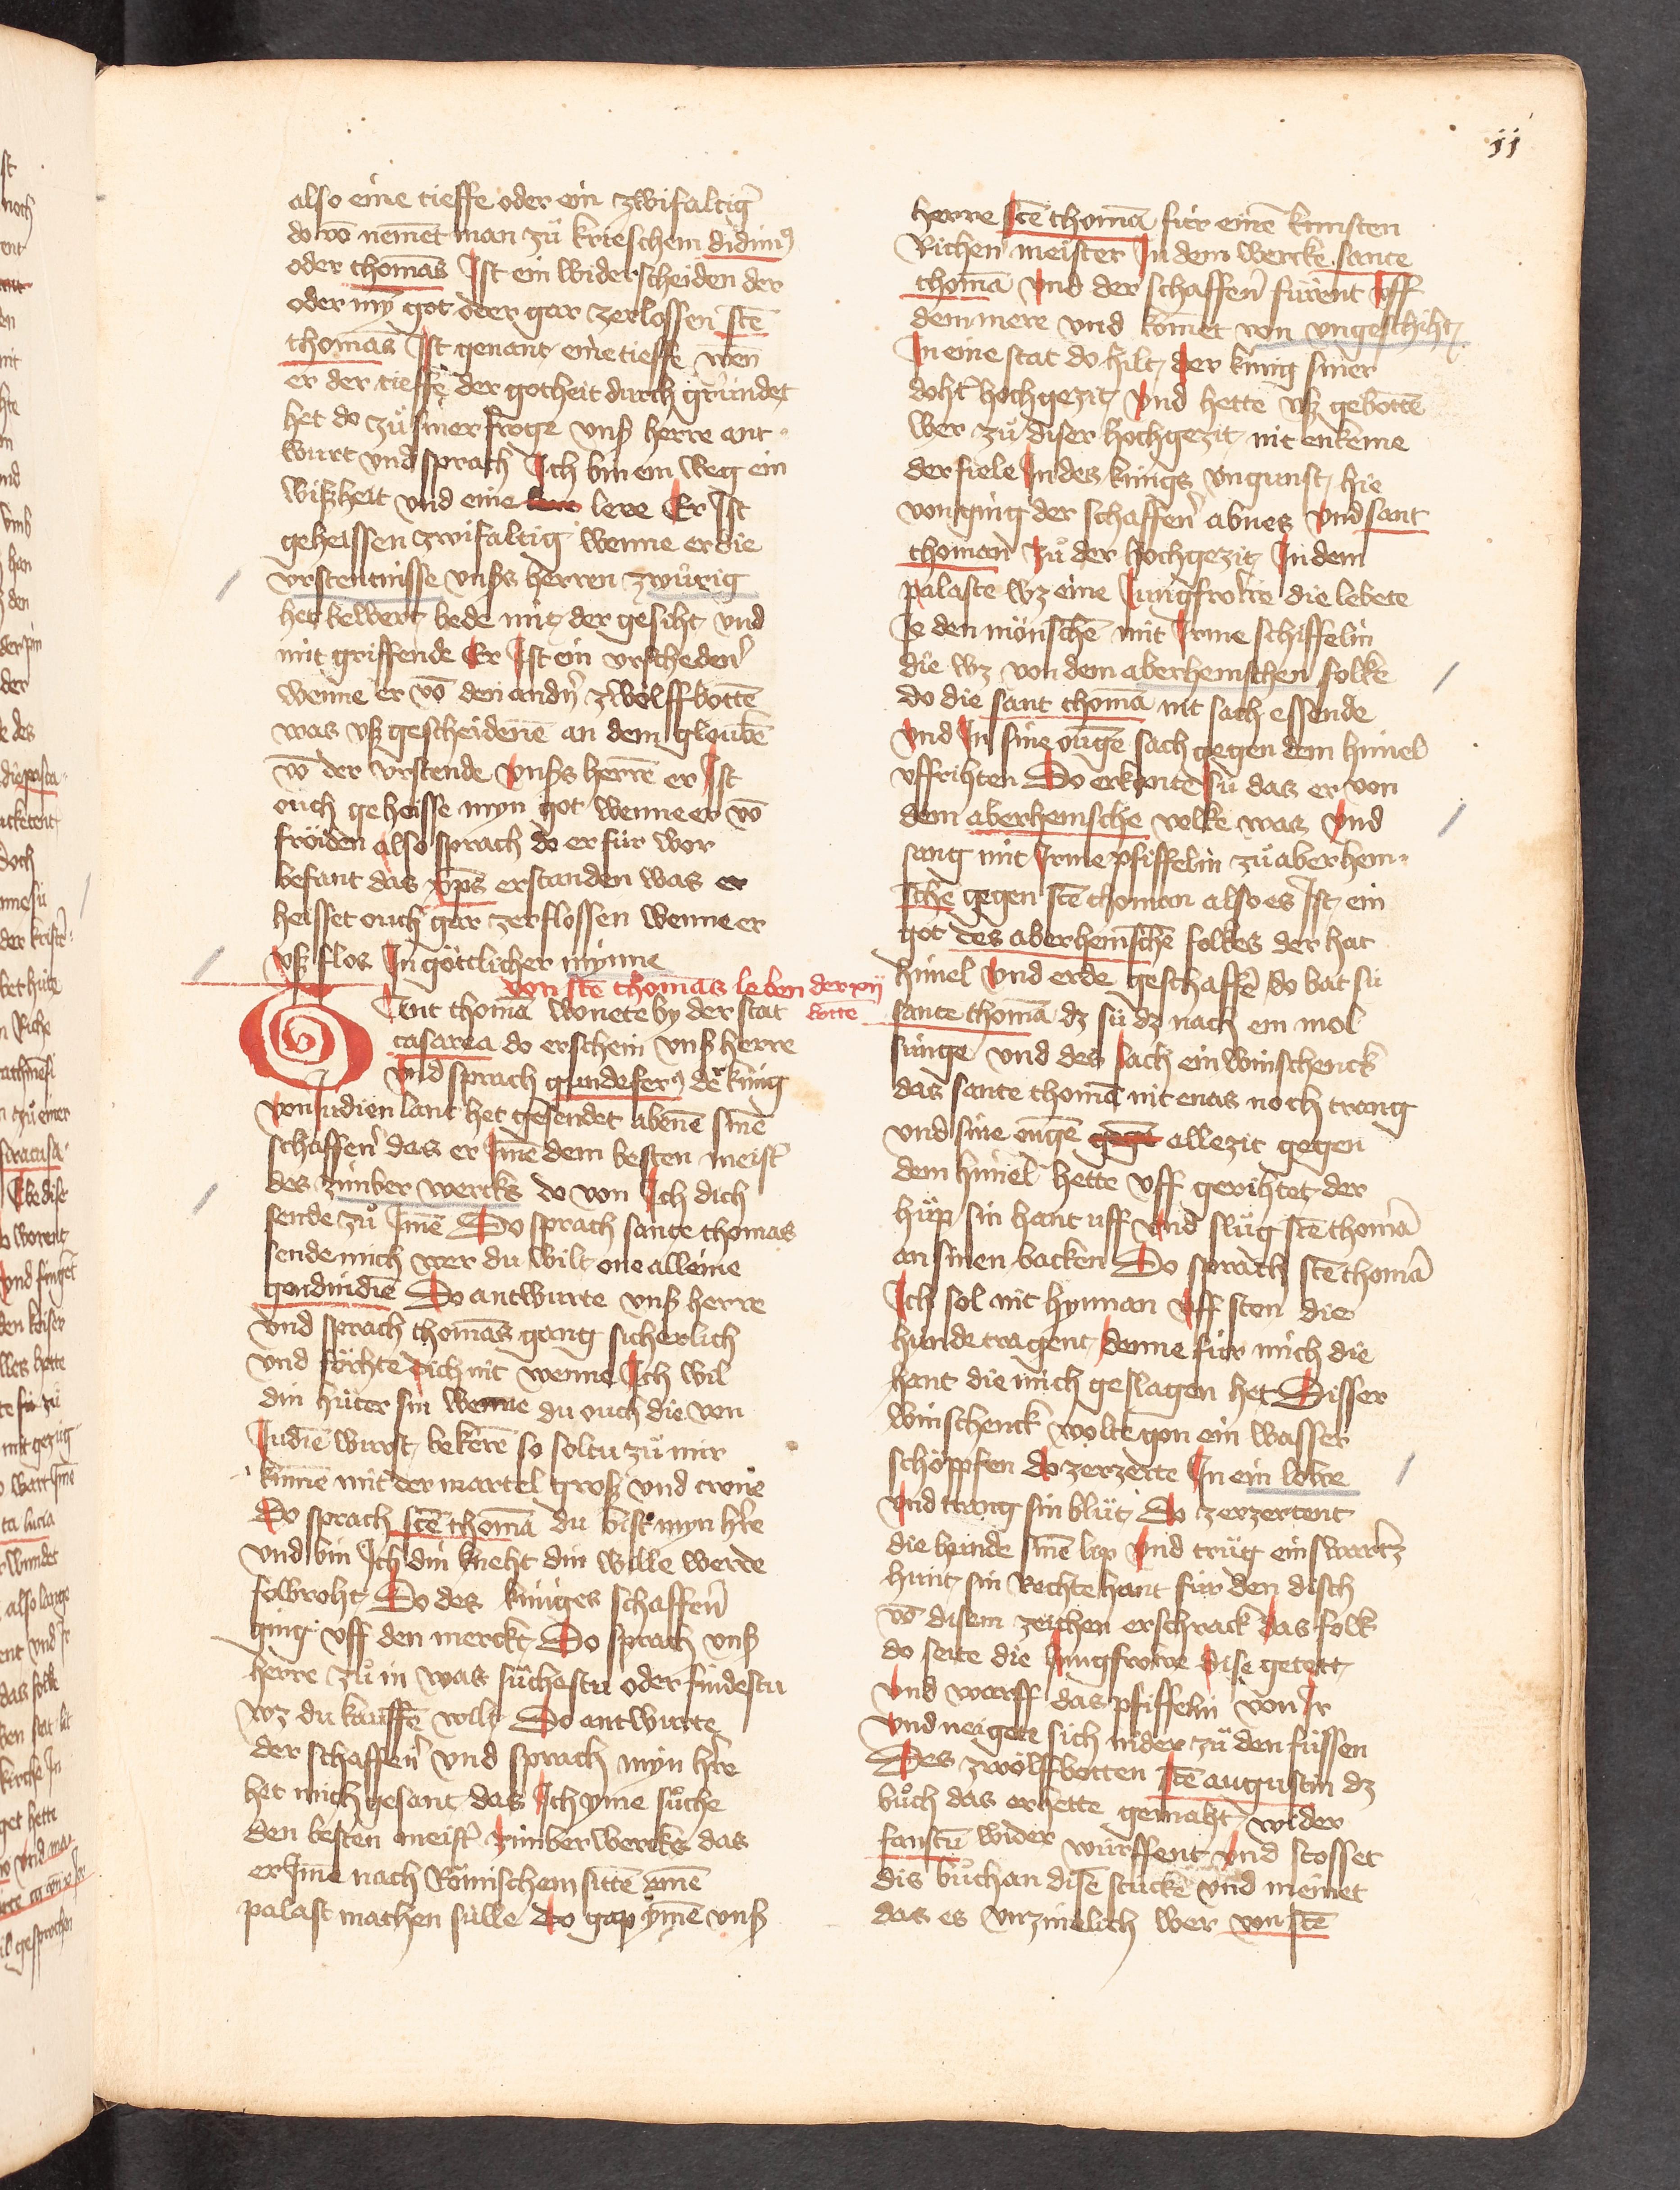 11
also eine tieffe oder ein zwifaltig̃
do vō nem̄et man zů krieschem didim9
oder thomãs Ist ein widerscheiden der
oder mȳ got oder gar zerlossen stē
thomãs Ist genant eine tieffe wen̄
er der tieffe der gotheit durch grundet
het do zů siner froge vnß herre ant
wurt vnd sprach Ich bin ein weg ein
wißheit vnd eine lere Er Ist
geheissen zwifaltig wenne er die
vrstentnisse vnsß herren zwůrig
het bewert bede mit der gesiht vnd
mit griffende Er Ist ein vrscheden͛
wenne er vō den andn͛ zwölffbottē
was vß gescheidene an dem gloubē
vō der vrstende vnßs herrē er Ist
ouch geheisse myn got wenne er vō
fröiden also sprach do er für wor
befant das xp̄s erstanden was er
heisset ouch gar zerflossen wenne er
vß flos In göttlicher mynne
von stē thomãs leben der xij
botte
SAnt thomã wonete by der stat
casarea do erschein vnß herre
vnd sprach gundefer9 dē kúnig
von Indien lant het gesendet abenē sinē
schaffen͛ das er Imē dem besten meist͛
des zimber wercks do von Ich dich
sende zů Imē Do sprach sante thomas
sende mich wer du wilt one alleine
gendindiē Do antwurte vnß herre
vnd sprach thomãs gang sicherlich
vnd förchte dich nit wenne Ich wil
din hüter sin wenne du ouch die von
Indiē wurst bekerē so soltu zů mir
kumē mit der martel groß vnd crone
Do sprach stē thomã du bist myn h͛re
vnd bin Ich din kneht din wille werde
folbroht Do des kúniges schaffen͛
ging vff den merckt Do sprach vnß
herre zů in was sůchestu oder findestu
wz du kauffē wilt Do antwurte
der schaffen͛ vnd sprach myn h͛re
het mich gesant das Ich yme sůche
den besten meist͛ zimber wercks das
er Imē nach Römischem sittē einē
palast machen sülle do gap ymē vnß
herre stē thomã für einē kunsten
Richen meister In dem wercke sante
thomã vnd der schaffen͛ fürent vff
dem mere vnd kom̄et von vngeschiht
In eine stat do hilt der kúnig siner
doht͛ hochgezit vnd hette vß gebottē
wer zů diser hochgezit nit enkeme
der fiele In des kúnigs vngunst hie
von ging der schaffen͛ abnes vnd sant
thoman zů der hochgezit In dem
palaste wz eine Iungfrowe die lebete
Ie den mönschē mit Irme schiffelin
die wz von dem aberhemschen folke
do die sant thomã nit sach essende
vnd In sine ougē sach gegen dem himel
vffrihten Do erkante sü das er von
dem aberhemsche volke was vnd
sang mit Irme pfiffelin zů aberhem
schē gegen stē thoman also es Ist ein
got des aberhemschē folkes der hat
himel vnd erde geschaffē do bat sü
sante thomã dz sü dz nach ein mol
sunge vnd des sach ein winschenck
das sante thomã nit enas noch trang
vnd sine ougē allezit gegen
dem himel hette vff gerihtet der
hůp sin hant vff vnd slůg stē thomã
an sinen backen Do sprach stē thomã
Ich sol nit hynnan vff sten die
hunde tragent denne für mich die
hant die mich geslagen het Disser
winschenck wolte gon ein wasser
schöppfen do zerzerte In ein lowe
vnd trang sin blůt Do zerzertent
die hunde sinē lip vnd trůg ein swartz
hunt sin Rechte hant für den disch
vō disem zeichen erschrack das folk
do seite die Iungfrowe dise getott
vnd warff das pfiffelin von Ir
vnd neigen sich nider zů den füssen
Des zwölffbotten stē augustin dz
bůch das er hette gemaht wider
faustū wider würffent vnd stosset
dis bůch an disē stücke vnd meinet
das es vnzimelich wer von stē